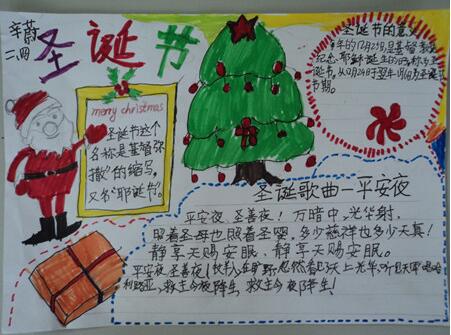 辛蔚
二、四
圣诞节
merry christmas
圣诞节这个
名称是基督弥
撒"的缩写,
又名"耶诞节"。
圣诞节的意义
年的12月25日,是基督教徒
纪念耶稣诞生的日
诞节,从12月24日于翌年1月6日为圣诞节
节期。
圣诞歌曲—平安夜
平安夜,圣善夜!万暗中,光华射,
照着圣母也照着圣婴,多少慈祥也多少天真!
静享天赐安眠、静享天赐安眠。
平安夜,圣善夜!牧羊人,在旷野,忽然看见天上光华,听见天军唱哈
利路亚,救主今夜降生,救主今夜降生!